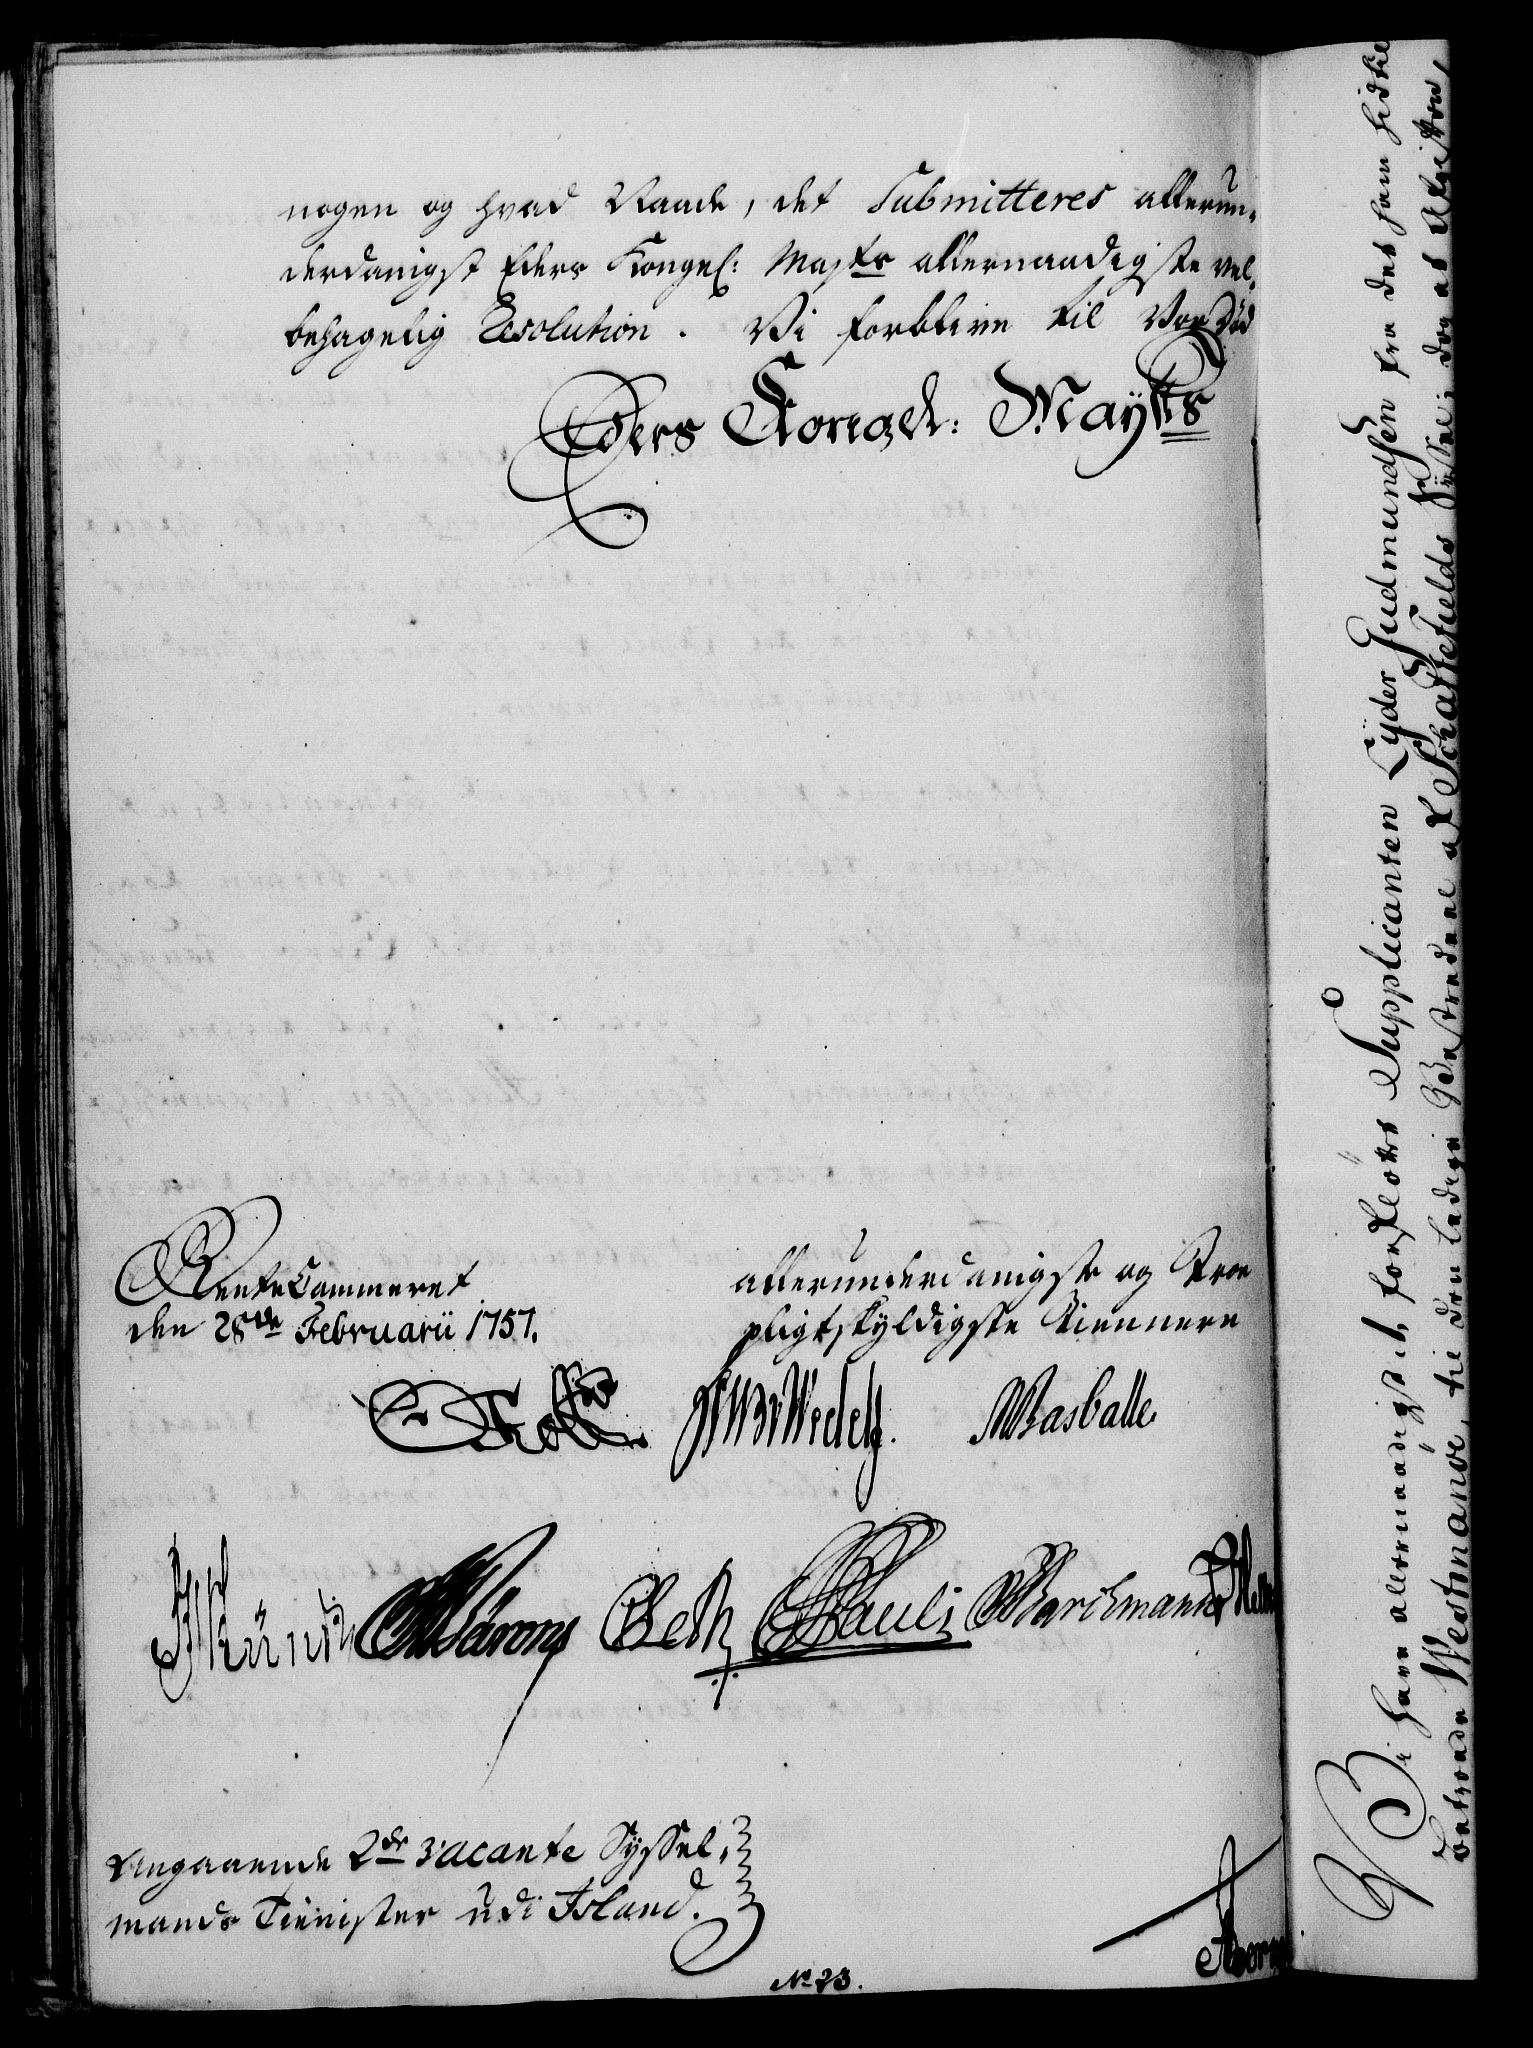 nogen og hvad Naade, det Submitteres allerun-
derdanigst Eders Kongel: Mayts allernaadigste vel-
behagelig Resolution. Vi forblive til Vor Død
Eders Kongel: Mayts
RenteCammeret
den 28de Februarii 1757.
allerunderdanigste og Troe
pligtskyldigste Tiennere
Holst HW v Wedell. Basballe
Bärens Seth Pauli Barchmann
Angaaende 2de vacante Syssel-
mands Tienister udi Island.
No 23.
Vi have allernaadigst, forfløtte Supplicanten Lyder Gudmundsen fra det ham hidtil
betroede Westmanöe, til den ledige Bestredene af Schaftefields Syssel; dog at